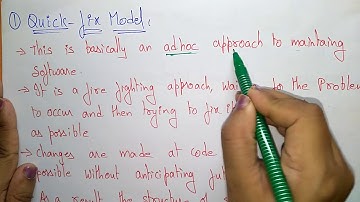 ① Quick-fix Model:
→ This is basically an adhoc approach to maintaing
Software.
→ It is a fire fighting approach, for the Problem
to occur and then trying to fix
as possible
→ Changes are made at code
possible without anticipating
As a result the structure of